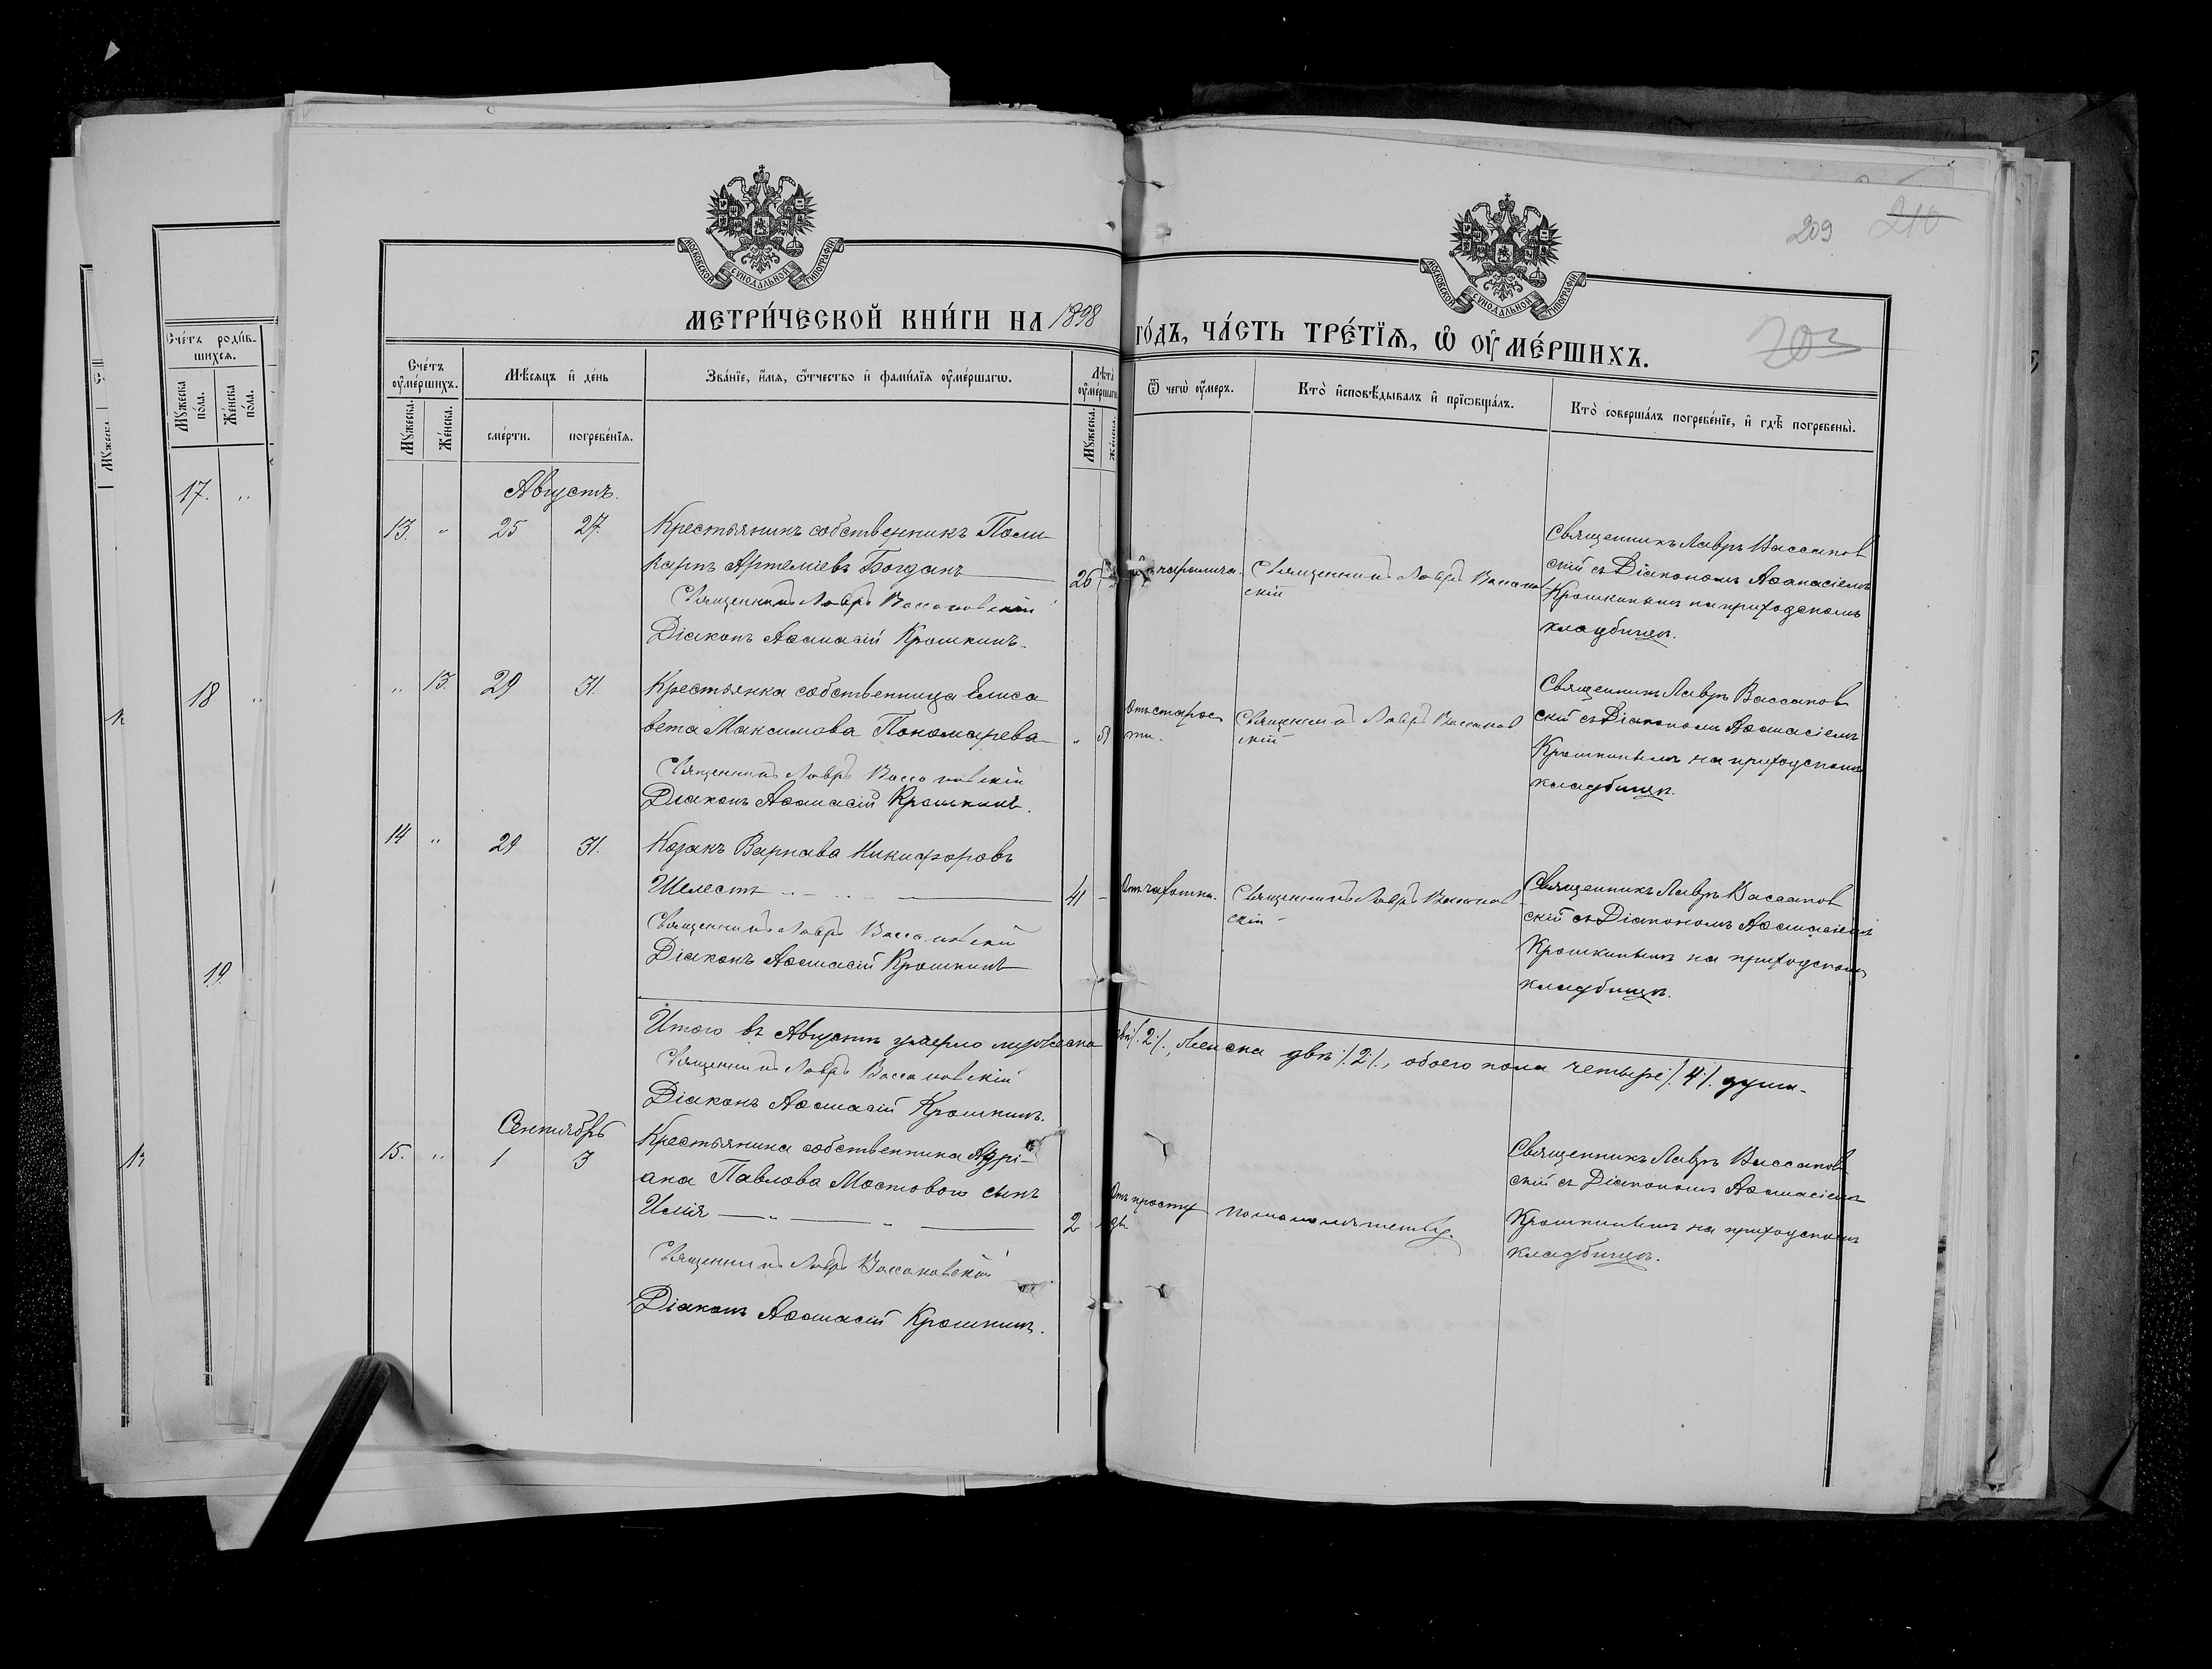 209 210
МОСКОВСКОЙ СѴНОДАЛЬНОЙ ТИПОГРАФІИ
МОСКОВСКОЙ СѴНОДАЛЬНОЙ ТИПОГРАФІИ
МЕТРИ́ЧЕСКОЙ КНИ́ГИ НА 1898 ГО́ДЪ, ЧА́СТЬ ТРЕ́ТЇѦ, Ѽ ОУМЕ́РШИХЪ.
203
Сче́тъ роди́в-
шихсѧ.
Мꙋжеска по́ла.
Же́нска по́ла.
17. "
18 "
19.
Сче́тъ оумершихъ.
Мꙋжеска.
Же́нска.
Мѣсѧцъ и҆ де́нь
сме́рти.
погребе́нїѧ.
Зва́нїе, и҆́мѧ, ѻ҆́тчество и҆ фами́лїѧ оуме́ршагѡ.
Лѣта̀ оуме́ршагѡ
Мꙋжеска.
Же́нска.
Ѿ чегѡ̀ оу́меръ.
Кто̀ и҆сповѣ́дывалъ и҆ прїѡбща́лъ.
Кто̀ соверша́лъ погребе́нїе, и҆ гдѣ̀ погребены̀.
Августъ.
13. " 25 27. Крестьянинъ собственникъ Поли-
карпъ Артеміевъ Богданъ 26
Священникъ Лавръ Вассановскій
Діаконъ Аѳанасій Крошкинъ.
Священникъ Лавръ Вассанов
скій
Священникъ Лавръ Вассанов
скій съ Діакономъ Аѳанасіемъ
Крошкинымъ на приходскомъ
кладбищѣ.
" 13. 29 31. Крестьянка собственница Елиса
вета Максимова Пономарева " 59
Священникъ Лавръ Вассановскій
Діаконъ Аѳанасій Крошкинъ.
Отъ старос
ти.
Священникъ Лавръ Вассанов
скій
Священникъ Лавръ Вассанов
скій съ Діакономъ Аѳанасіемъ
Крошкинымъ на приходскомъ
кладбищѣ.
14 " 29 31. Козакъ Варнава Никифоровъ
Шелестъ 41 -
Священникъ Лавръ Вассановскій
Діаконъ Аѳанасій Крошкинъ
Отъ чахотки.
Священникъ Лавръ Вассанов
скій
Священникъ Лавръ Вассанов
скій съ Діакономъ Аѳанасіемъ
Крошкинымъ на приходскомъ
кладбищѣ.
Итого въ Августѣ умерло мужеска двѣ /.2./, женска двѣ /.2./, обоего пола четыре /.4./. души.
Священникъ Лавръ Вассановскій
Діаконъ Аѳанасій Крошкинъ.
Сентябрь
15. " 1 3 Крестьянина собственника Адрі-
ана Павлова Мостового сынъ
Илія 2
Священникъ Лавръ Вассановскій
Діаконъ Аѳанасій Крошкинъ.
Отъ просту
ды.
По малолѣтству.
Священникъ Лавръ Вассанов
скій съ Діакономъ Аѳанасіемъ
Крошкинымъ на приходскомъ
кладбищѣ.